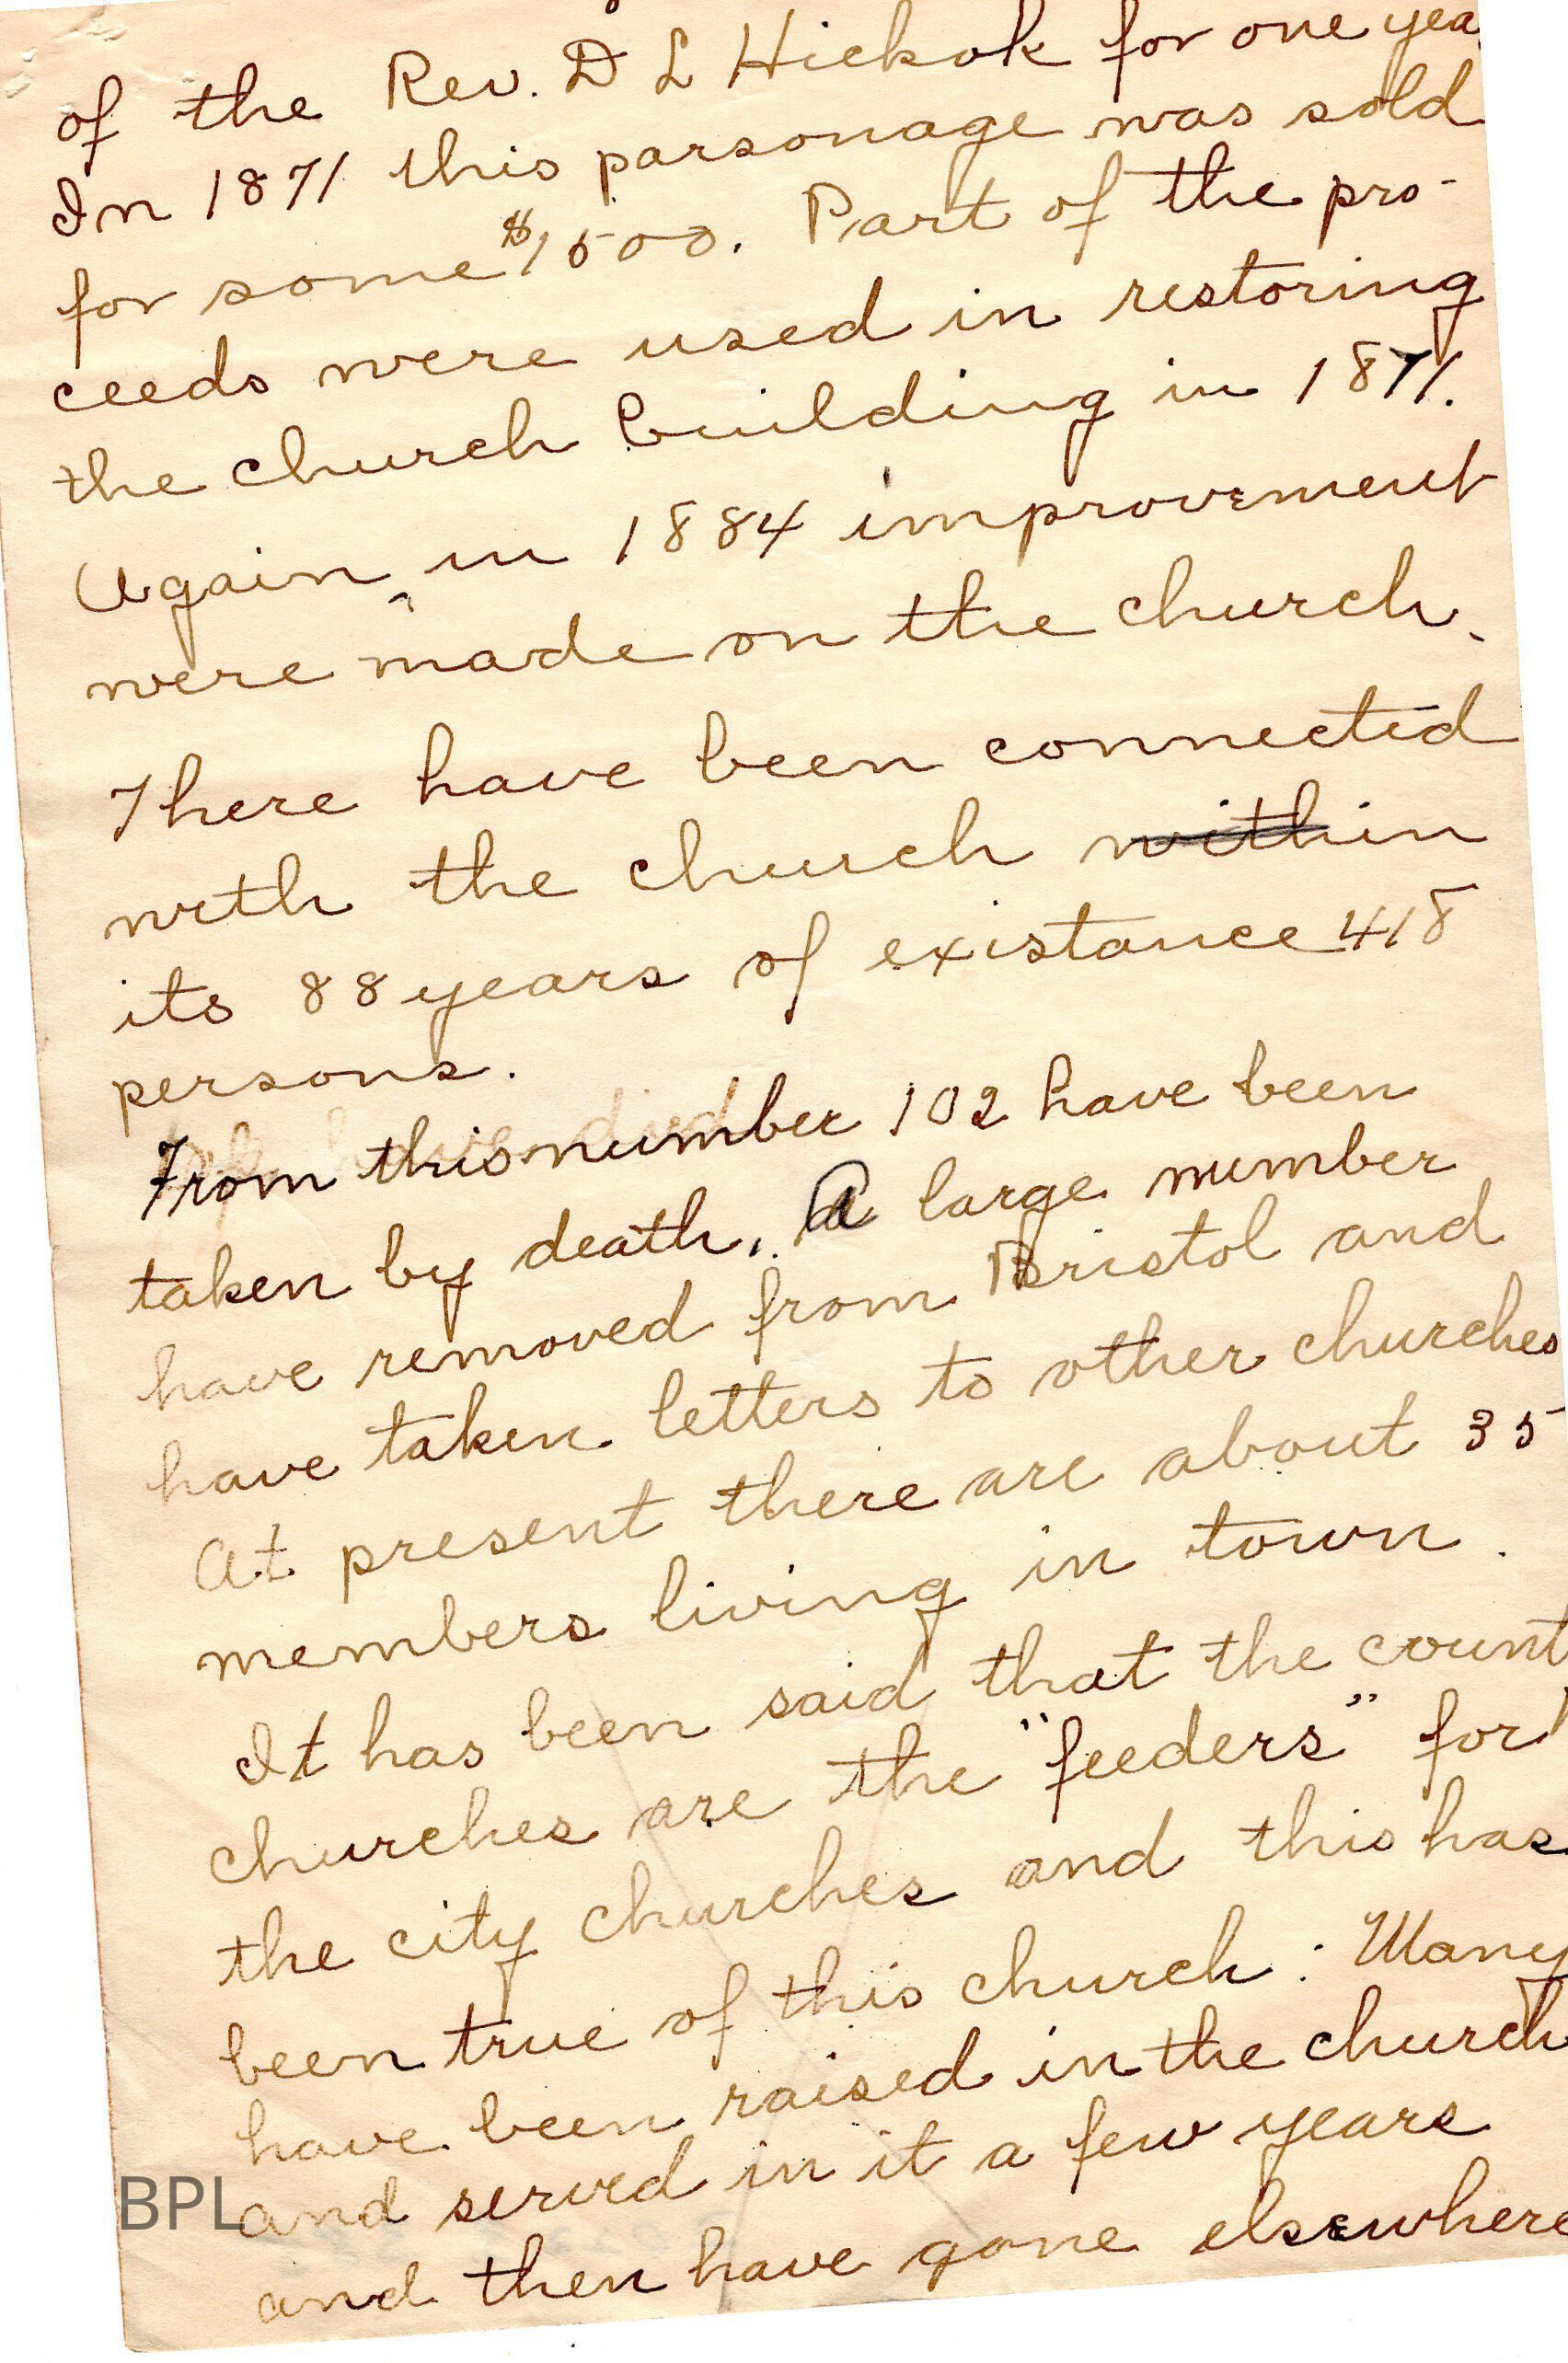 of the Rev. D L Hickok for one yea
In 1871 this parsonage was sold
for some $1500. Part of the pro-
ceeds were used in restoring
the church building in 1871.
Again, in 1884 improvement
were made on the church.
There have been connected
with the church within
its 88 years of existance 418
persons.
From this number 102 have been
taken by death. A large number
have removed from Bristol and
have taken letters to other churches
At present there are about 35
members living in town.
It has been said that the count
churches are the "feeders" for
the city churches and this has
been true of this church: Many
have been raised in the church
and served in it a few years
and then have gone elsewhere
BPL